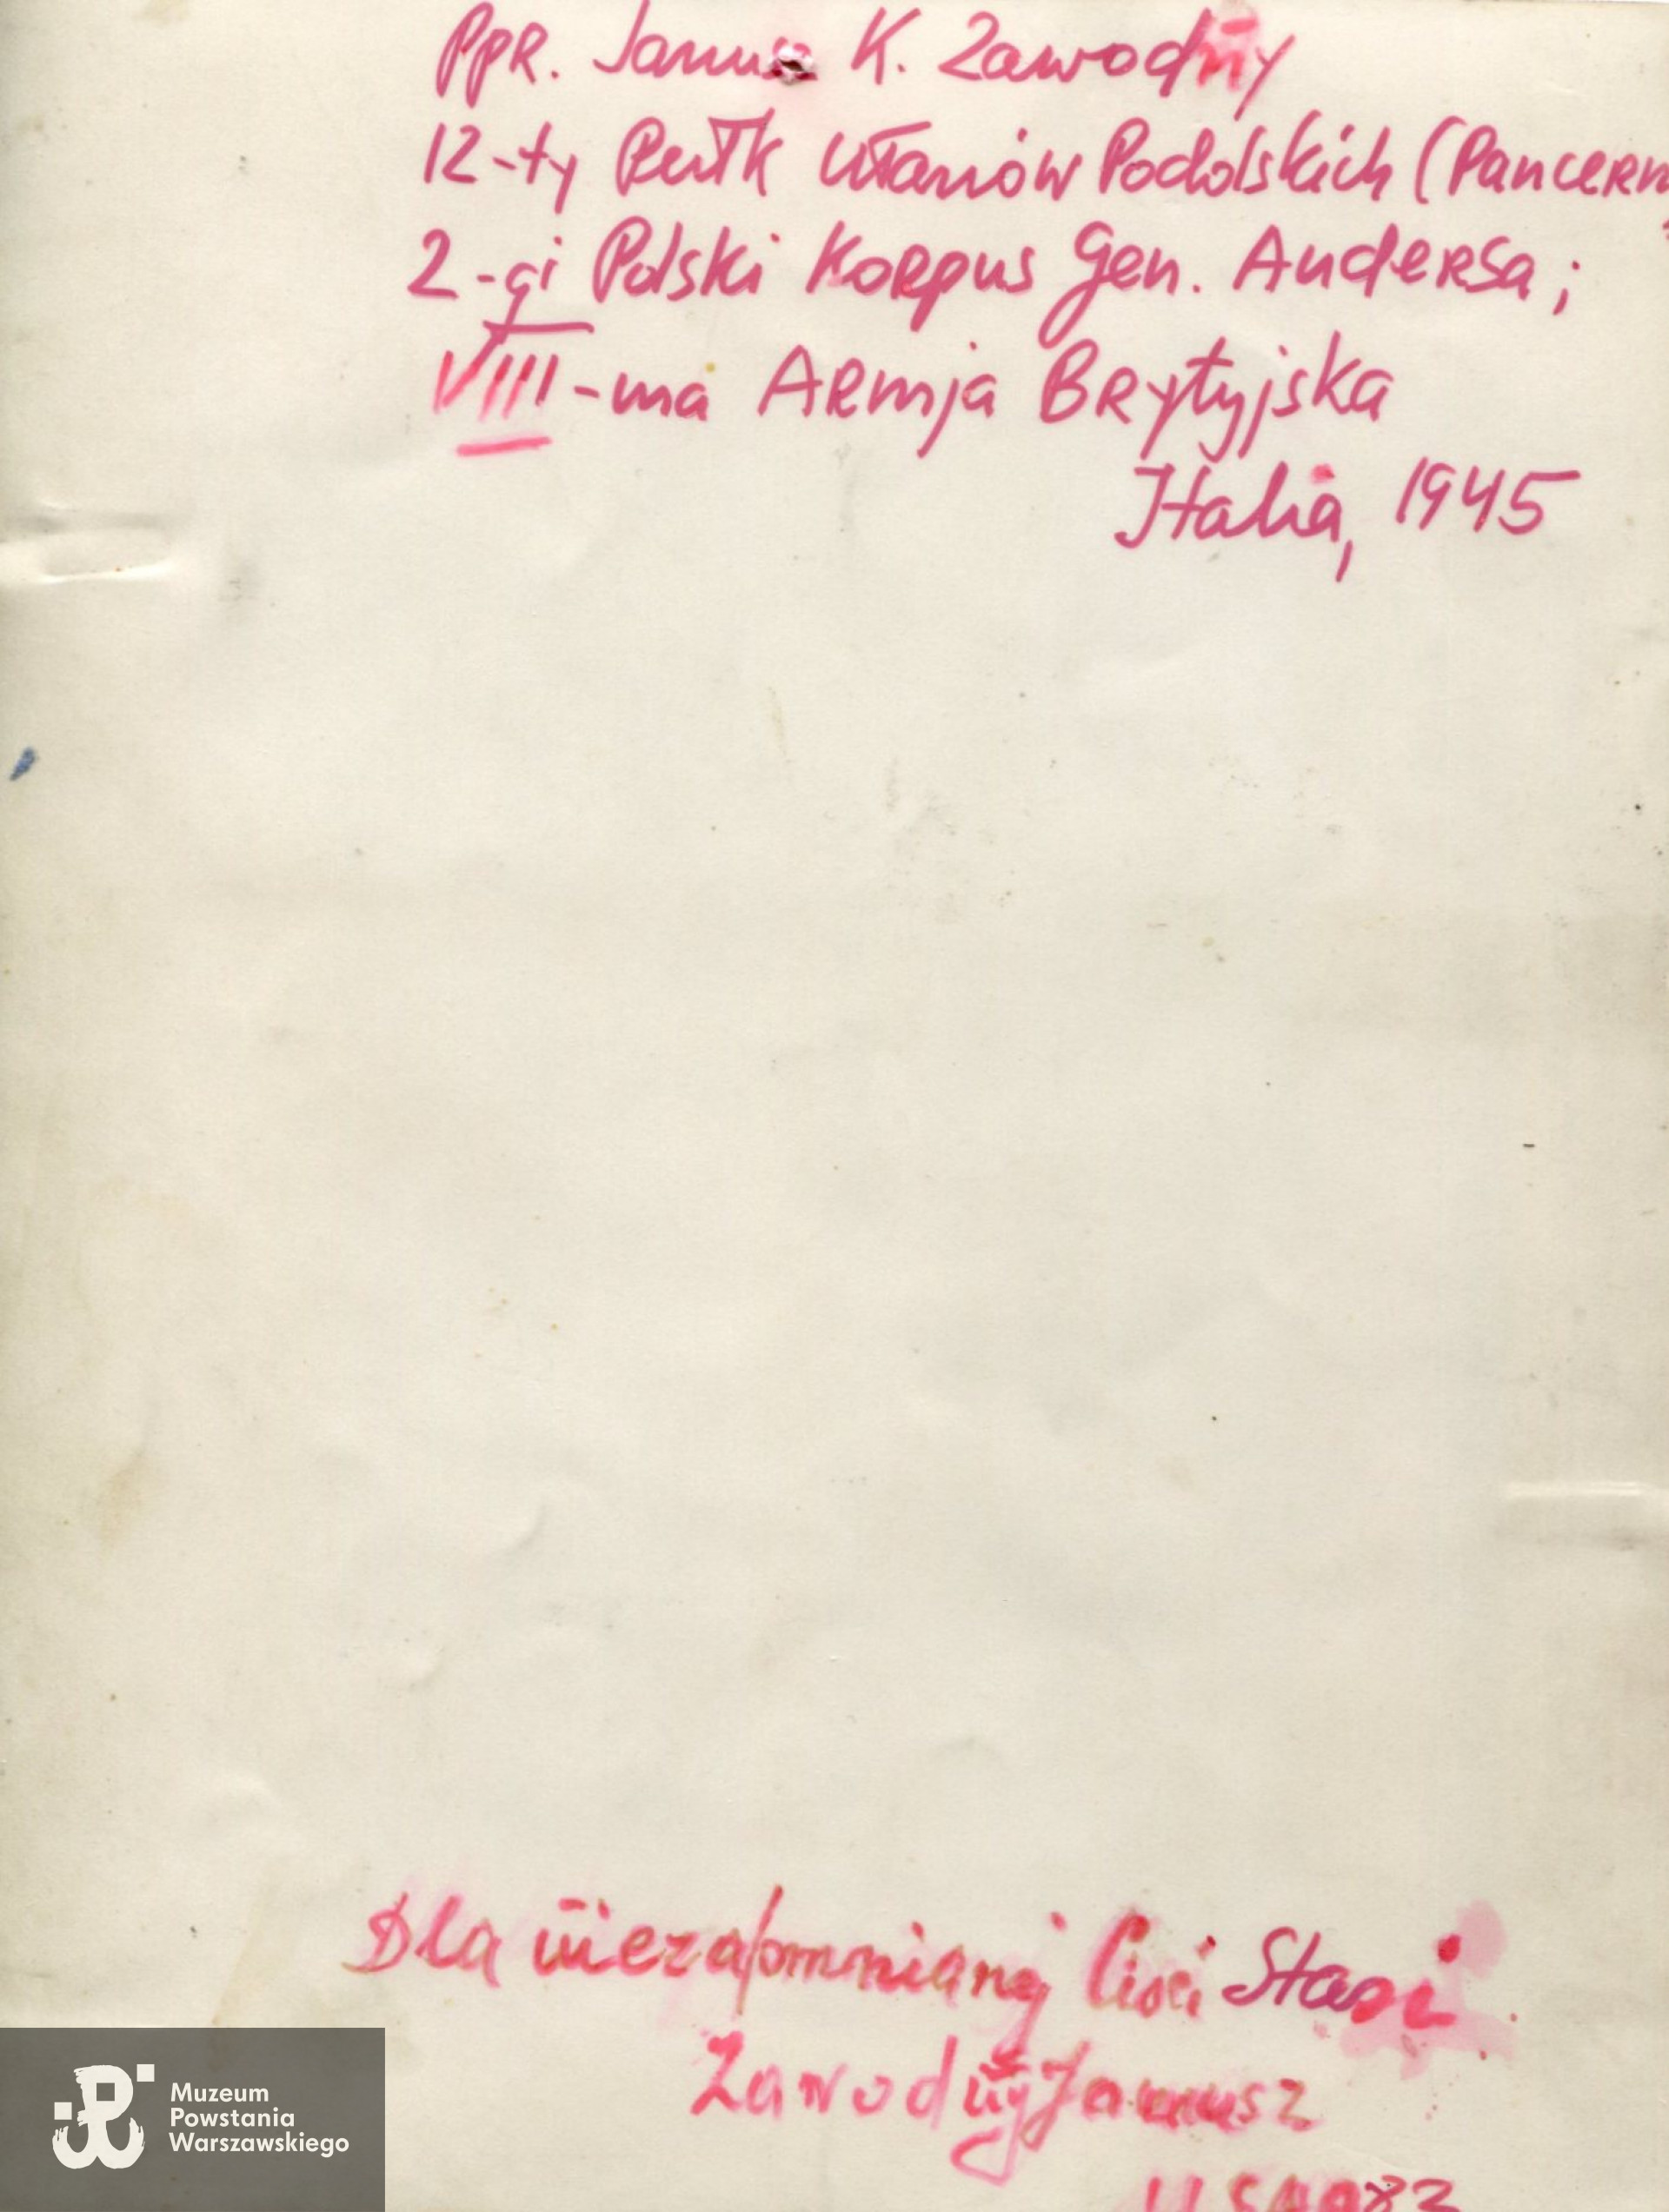 Ppr. Janusz K. Zawodny
12-ty Pułk Ułanów Podolskich (Pancerny
2-gi Polski Korpus Gen. Andersa;
VIII-ma Armja Brytyjska
Italia, 1945
Dla niezapomnianej Cioci Stasi
Zawodny Janusz
USA 983
Muzeum
Powstania
Warszawskiego